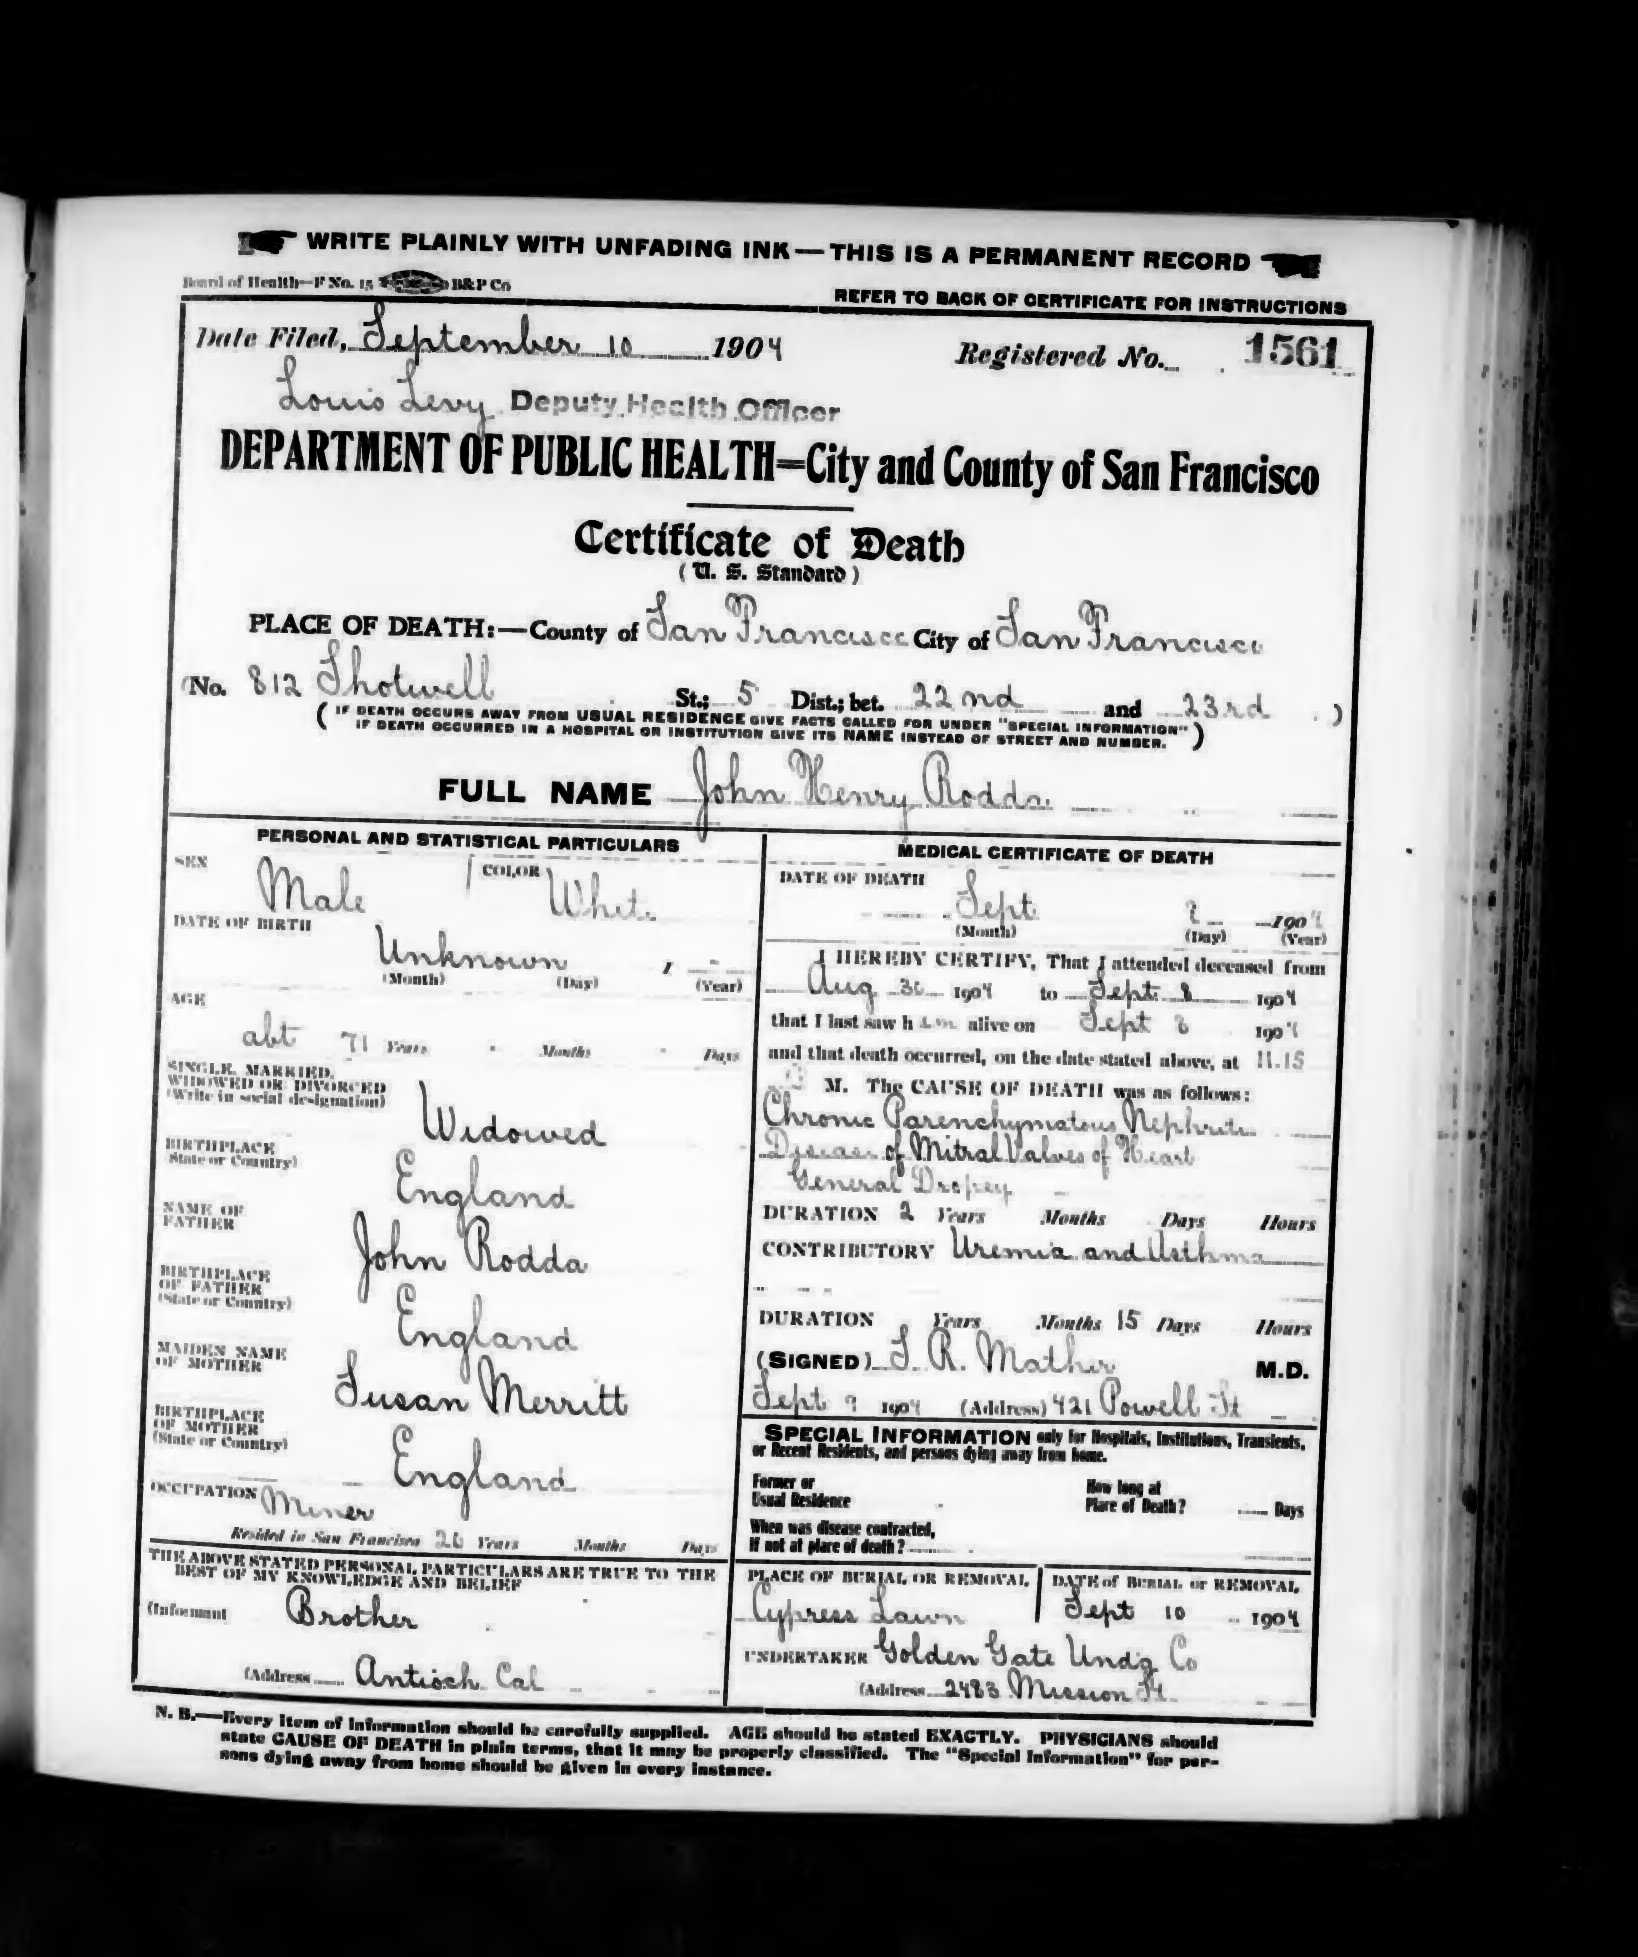 WRITE PLAINLY WITH UNFADING INK—THIS IS A PERMANENT RECORD
Board of Health—F No. 15 B&P Co
REFER TO BACK OF CERTIFICATE FOR INSTRUCTIONS
Date Filed, September 10 1904
Registered No. 1561
Louis Levy Deputy Health Officer
DEPARTMENT OF PUBLIC HEALTH=City and County of San Francisco
Certificate of Death
( U. S. Standard )
PLACE OF DEATH:—County of San Francisco City of San Francisco
(No. 812 Shotwell St.; 5 Dist.; bet. 22nd and 23rd )
( IF DEATH OCCURS AWAY FROM USUAL RESIDENCE GIVE FACTS CALLED FOR UNDER "SPECIAL INFORMATION"
IF DEATH OCCURRED IN A HOSPITAL OR INSTITUTION GIVE ITS NAME INSTEAD OF STREET AND NUMBER. )
FULL NAME John Henry Rodda
PERSONAL AND STATISTICAL PARTICULARS
SEX Male
COLOR White
DATE OF BIRTH
Unknown 1
(Month) (Day) (Year)
AGE
abt 71 Years Months Days
SINGLE, MARRIED,
WIDOWED OR DIVORCED
(Write in social designation)
Widowed
BIRTHPLACE
(State or Country)
England
NAME OF
FATHER
John Rodda
BIRTHPLACE
OF FATHER
(State or Country)
England
MAIDEN NAME
OF MOTHER
Susan Merritt
BIRTHPLACE
OF MOTHER
(State or Country)
England
OCCUPATION Miner
Resided in San Francisco 20 Years Months Days
THE ABOVE STATED PERSONAL PARTICULARS ARE TRUE TO THE
BEST OF MY KNOWLEDGE AND BELIEF
(Informant Brother
(Address Antioch Cal
MEDICAL CERTIFICATE OF DEATH
DATE OF DEATH
Sept 1904
(Month) (Day) (Year)
I HEREBY CERTIFY, That I attended deceased from
Aug 30 1904 to Sept 8 1904
that I last saw him alive on Sept 8 1904
and that death occurred, on the date stated above, at 11.15
M. The CAUSE OF DEATH was as follows:
Chronic Parenchymatous Nephritis
Disease of Mitral Valves of Heart
General Dropsy
DURATION 2 Years Months Days Hours
CONTRIBUTORY Uremia and Asthma
DURATION Years Months 15 Days Hours
(SIGNED) S. R. Mather M.D.
Sept 9 1904 (Address) 421 Powell St
SPECIAL INFORMATION only for Hospitals, Institutions, Transients,
or Recent Residents, and persons dying away from home.
Former or
Usual Residence
How long at
Place of Death? Days
When was disease contracted,
If not at place of death?
PLACE OF BURIAL OR REMOVAL
Cypress Lawn
DATE of BURIAL or REMOVAL
Sept 10 1904
UNDERTAKER Golden Gate Undg Co
(Address 2483 Mission St.
N. B.—Every item of information should be carefully supplied. AGE should be stated EXACTLY. PHYSICIANS should
state CAUSE OF DEATH in plain terms, that it may be properly classified. The "Special Information" for per-
sons dying away from home should be given in every instance.